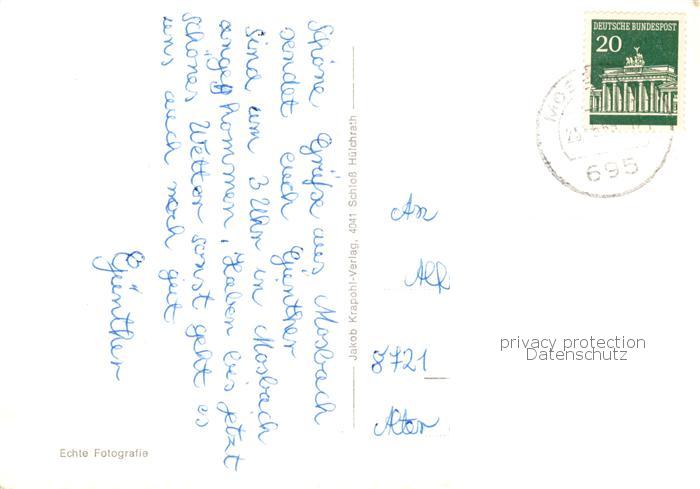 Schöne Grüße aus Mosbach
sendet euch Günther
Sind um 3 Uhr in Mosbach
angekommen, Haben bis jetzt
schönes Wetter sonst geht es
uns auch noch gut
Günther
Jakob Krapohl-Verlag, 4041 Schloß Hülchrath
Echte Fotografie
DEUTSCHE BUNDESPOST
20
MOS
695
An
Alf
8721
Alten
privacy protection
Datenschutz